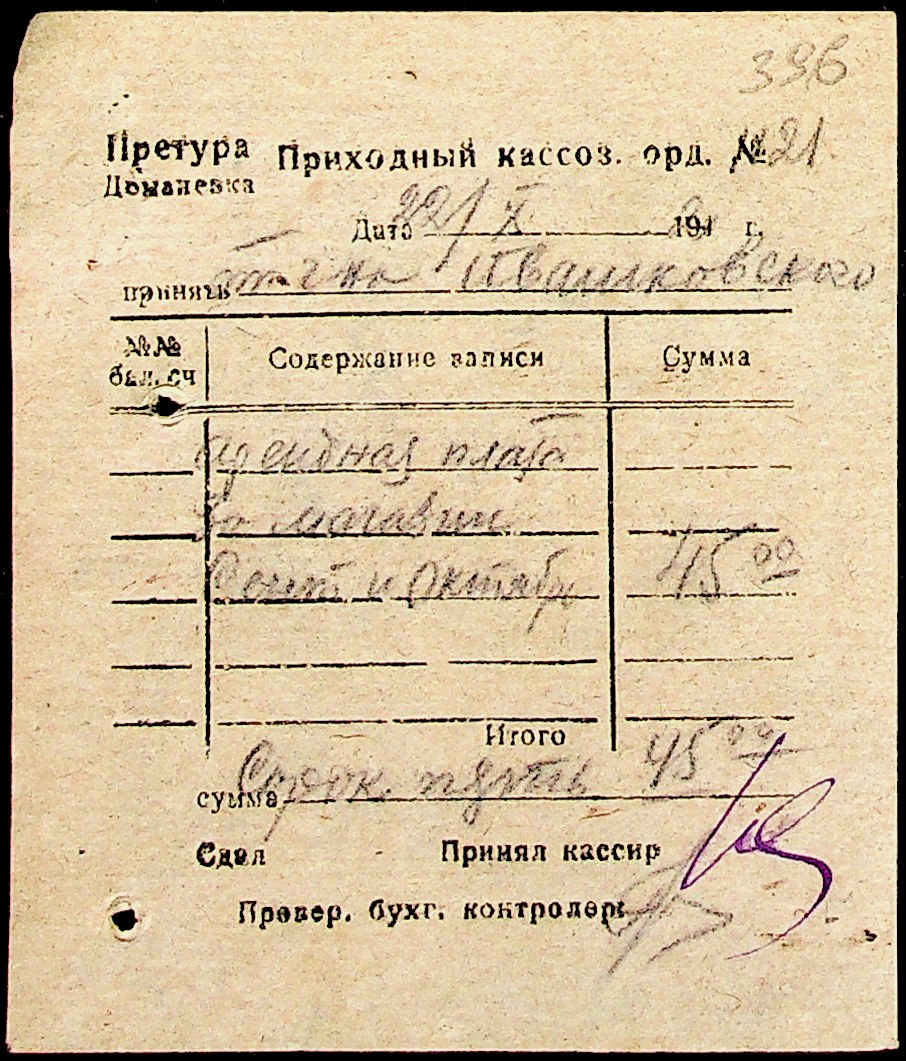 396
Претура Приходный кассоз. орд. № 21
Доманевка
Дата 22/X 194 г.
принять от г-на Ивашковского
№№ бал. сч Содержание записи Сумма
арендная плата
за магазин
Сент и Октябрь 45 00
Итого 45 00
сумма Сорок пять
Сдал Принял кассир
Провер. бухг. контролер